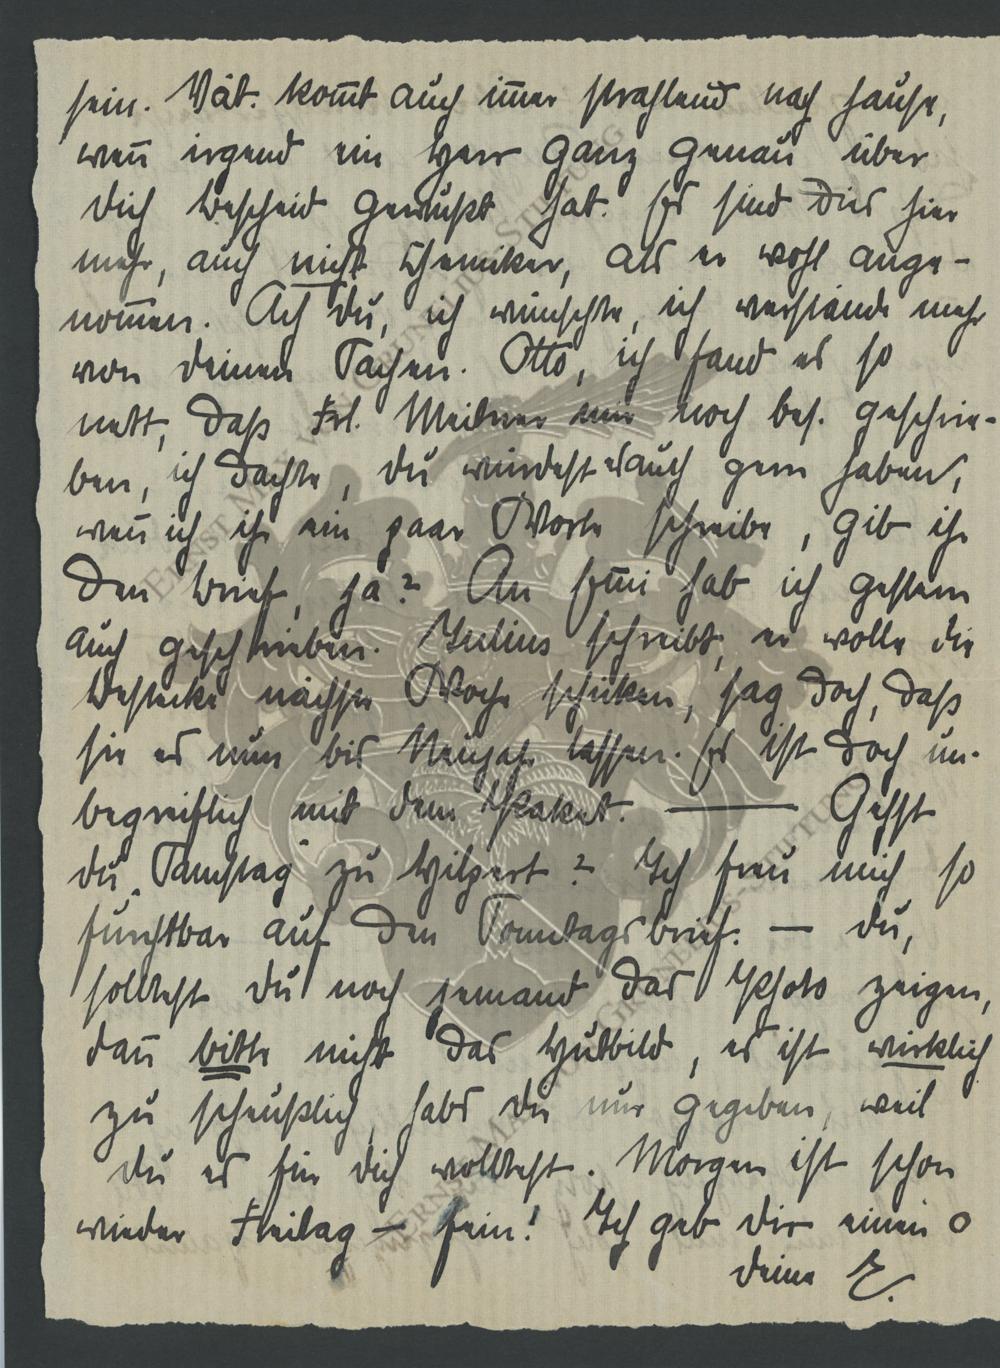 sein. Vät. kom̅t auch im̅er strahlend nach Hause,
wen̅ irgend ein Herr ganz genau über
dich bescheid gewußt hat. Es sind dies hier
mehr, auch nicht Chemiker, als er wohl ange-
nom̅en. Ach du, ich wünschte, ich verstände mehr
von deinen Sachen. Otto, ich fand es so
nett, daß Frl. Meitner mir noch bes. geschrie-
ben, ich dachte, du würdest es auch gern haben,
wen̅ ich ihr ein paar Worte schreibe, gib ihr
den Brief, ja? An Em̅i hab ich gestern
auch geschrieben. Julius schreibt, er wolle die
Bestecke nächste Woche schicken, sag doch, daß
sie es nun bis Neujahr lassen. Es ist doch un-
begreiflich mit dem Paket. — Gehst
du „Samstag" zu Hilpert? Ich freu mich so
furchtbar auf den Sonntagsbrief. — du,
solltest du noch jemand das Photo zeigen,
dan̅ bitte nicht das Hutbild, es ist wirklich
zu scheußlich, habs dir nur gegeben, weil
du es für dich wolltest. Morgen ist schon
wieder Freitag – fein! Ich geb dir einen o
deine E.
ERNST MA
STIFTUNG